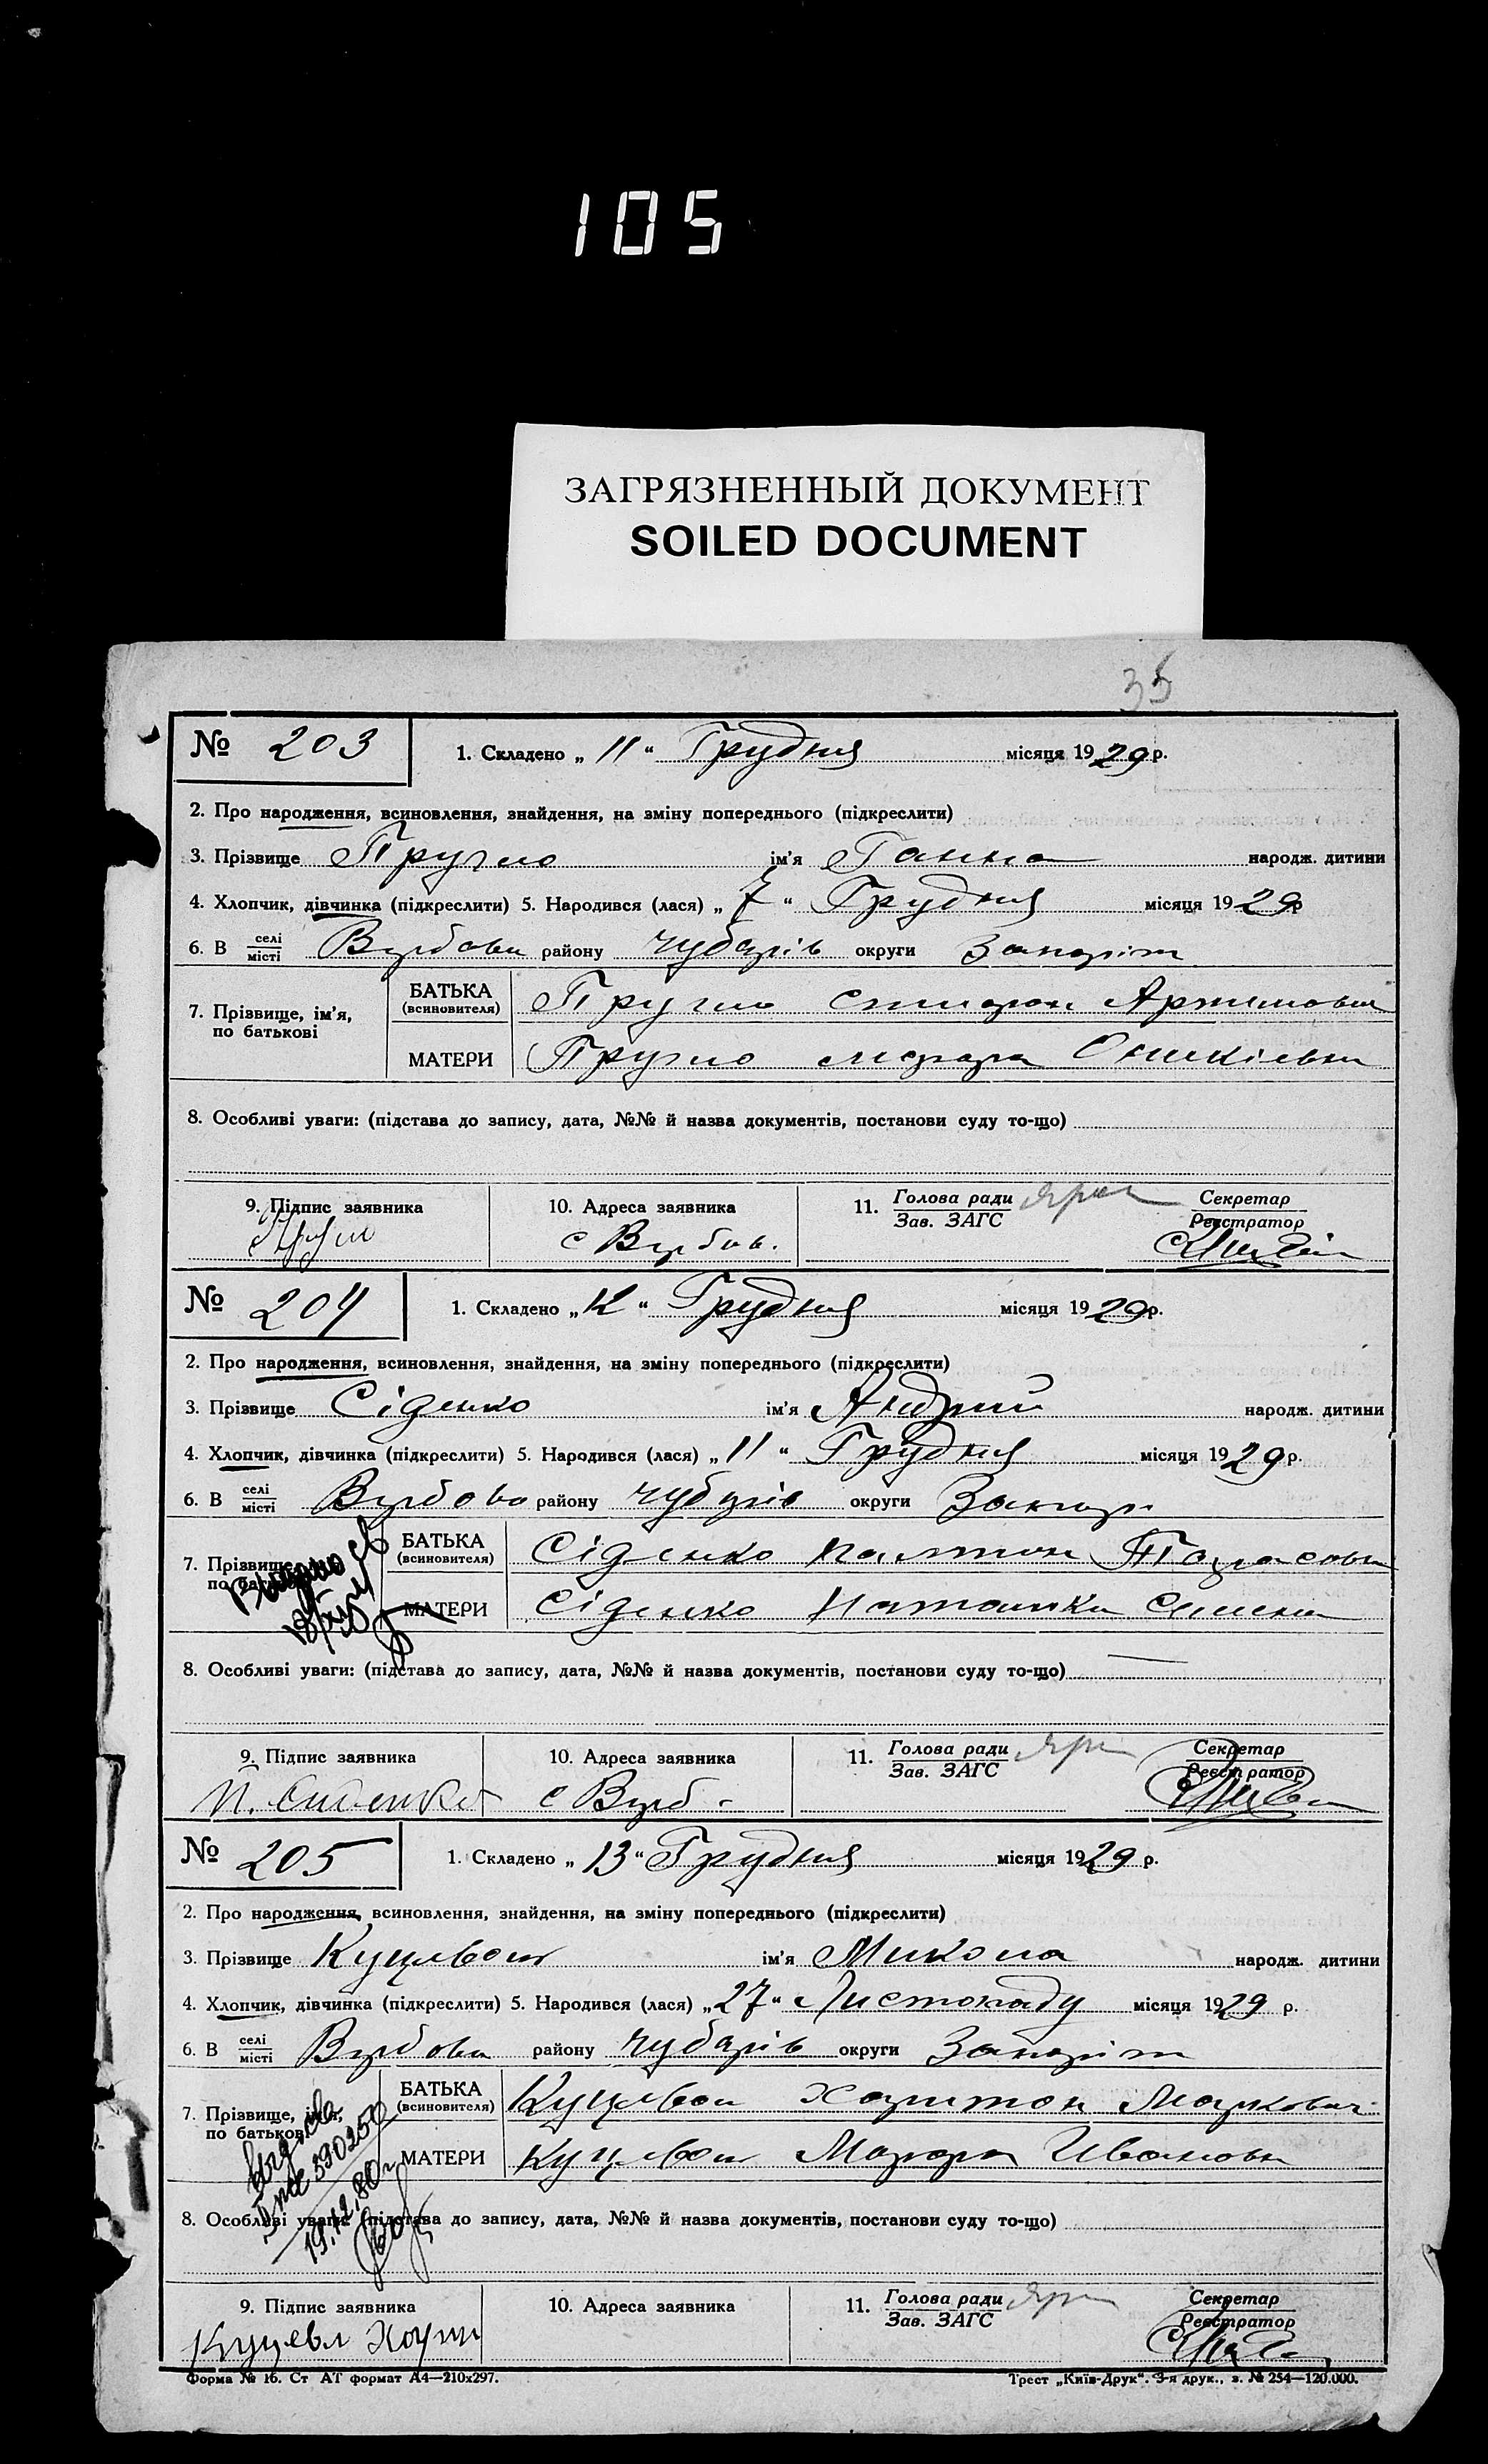 105
ЗАГРЯЗНЕННЫЙ ДОКУМЕНТ
SOILED DOCUMENT
35
№ 203 1. Складено „ 11 “ Грудня місяця 1929 р.
2. Про народження, всиновлення, знайдення, на зміну попереднього (підкреслити)
3. Прізвище ім'я Ганна народж. дитини
4. Хлопчик, дівчинка (підкреслити) 5. Народився (лася) „ 7 “ Грудня місяця 1929 р
6. В селі/місті Вербови району Чубарів округи Запоріж
7. Прізвище, ім'я, по батькові
БАТЬКА (всиновителя)
МАТЕРИ
8. Особливі уваги: (підстава до запису, дата, №№ й назва документів, постанови суду то-що)
9. Підпис заявника 10. Адреса заявника 11. Голова ради/Зав. ЗАГС Секретар/Реєстратор
с Вербов.
№ 204 1. Складено „ 12 “ Грудня місяця 1929 р.
2. Про народження, всиновлення, знайдення, на зміну попереднього (підкреслити)
3. Прізвище Сіденко ім'я Андрий народж. дитини
4. Хлопчик, дівчинка (підкреслити) 5. Народився (лася) „ 11 “ Грудня місяця 1929 р.
6. В селі/місті Вербова району Чубарів округи Запор
7. Прізвище по батькові
БАТЬКА (всиновителя) Сіденко Тарасови
МАТЕРИ Сіденко
8. Особливі уваги: (підстава до запису, дата, №№ й назва документів, постанови суду то-що)
9. Підпис заявника 10. Адреса заявника 11. Голова ради/Зав. ЗАГС Секретар/Реєстратор
П. Сиденко с Верб.
№ 205 1. Складено „ 13 “ Грудня місяця 1929 р.
2. Про народження, всиновлення, знайдення, на зміну попереднього (підкреслити)
3. Прізвище ім'я Микола народж. дитини
4. Хлопчик, дівчинка (підкреслити) 5. Народився (лася) „ 27 “ Листопаду місяця 1929 р.
6. В селі/місті Вербови району Чубарів округи Запоріж
7. Прізвище, ім'я, по батькові
БАТЬКА (всиновителя) Харитон Маркович
МАТЕРИ Марфа Иванови
590250
19.12.80г
8. Особливі уваги: (підстава до запису, дата, №№ й назва документів, постанови суду то-що)
9. Підпис заявника 10. Адреса заявника 11. Голова ради/Зав. ЗАГС Секретар/Реєстратор
Форма № 16. Ст АТ формат А4—210х297. Трест „Київ-Друк“. 3-я друк., з. № 254—120.000.